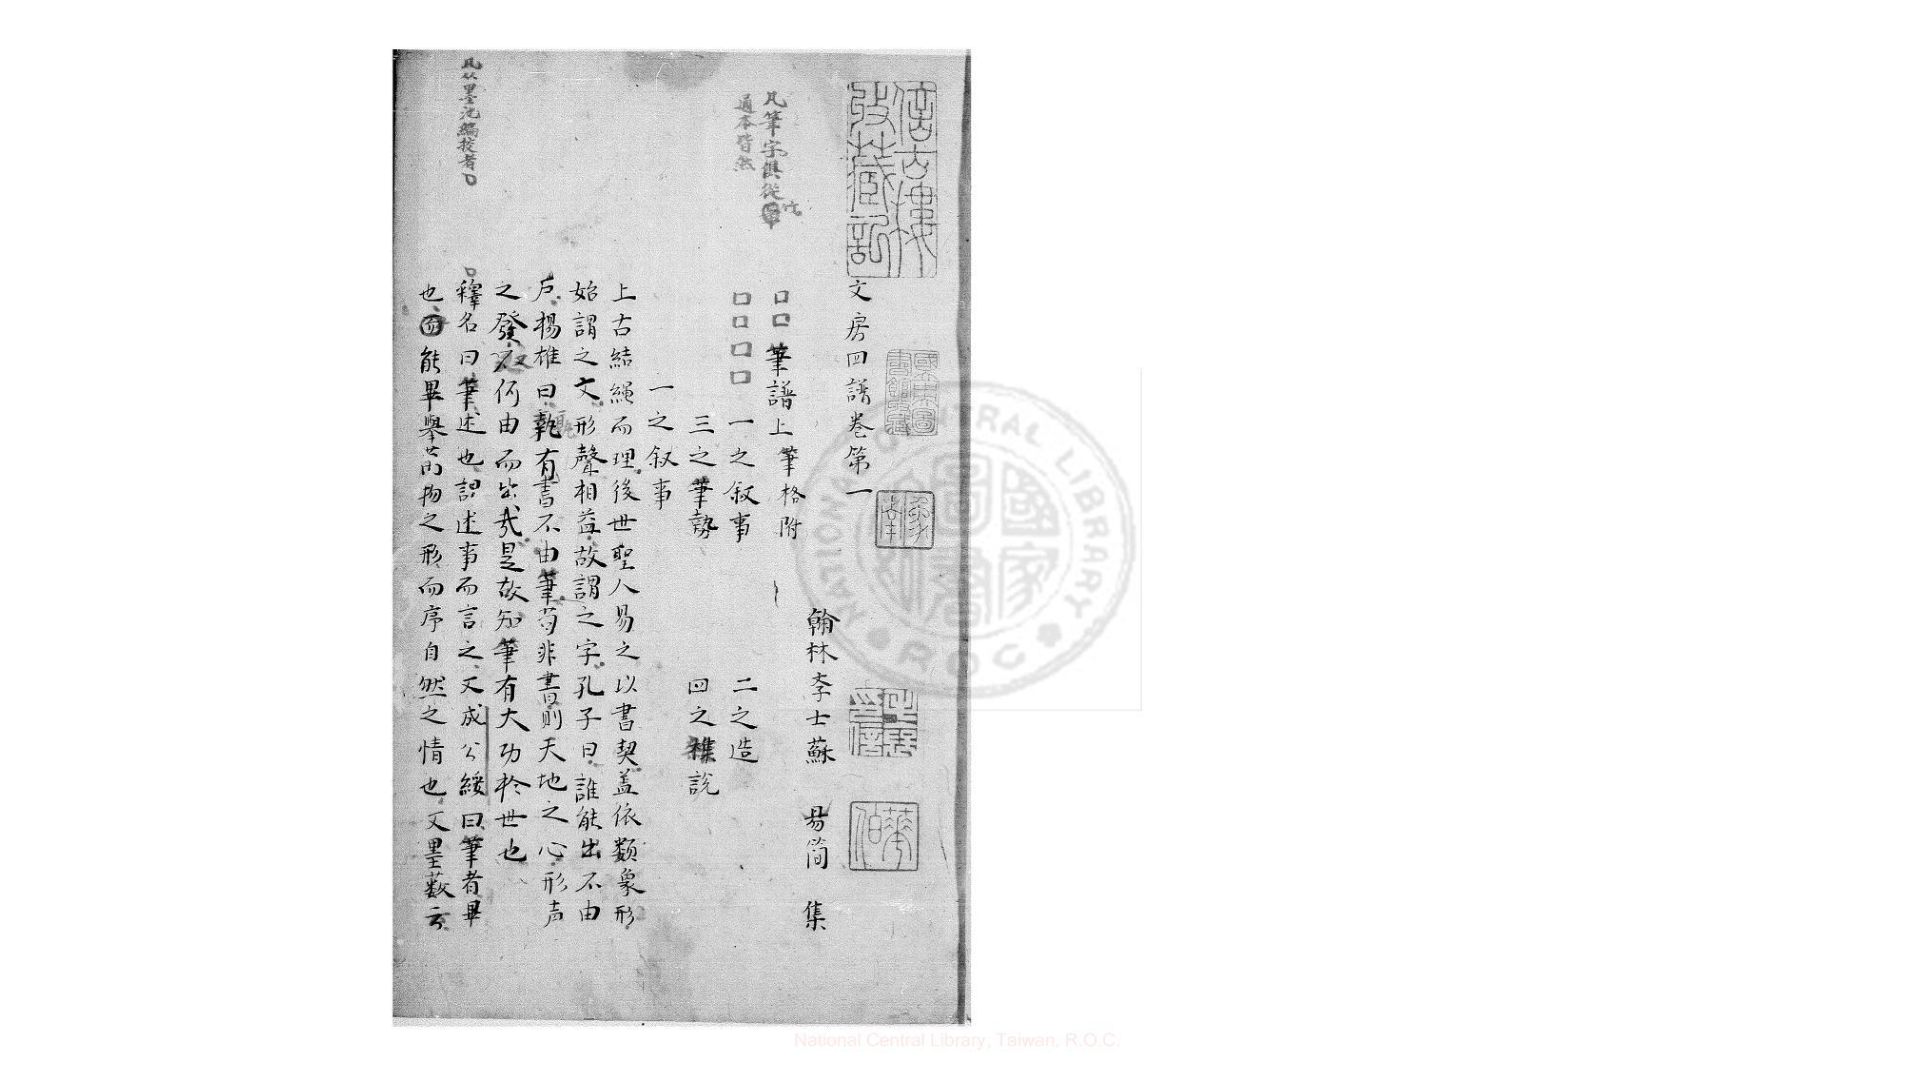 文房四譜卷第一
翰林李士蘇 易简 集
口口筆譜上筆格附
口口口口 一之叙事 二之造
三之筆勢 四之雜說
一之叙事
上古結繩而理後世聖人易之以書契盖依類象形
始謂之文形聲相益故謂之字孔子曰誰能出不由
戶楊雄曰孰有書不由筆苟非書則天地之心形声
之發又何由而出哉是故知筆有大功於世也
釋名曰筆述也謂述事而言之又成公綏曰筆者畢
也能畢舉萬物之形而序自然之情也又墨藪云
凡筆字俱從竹
通本皆然
信古樓收藏記
國立中央圖書館收藏
NATIONAL CENTRAL LIBRARY
R O C
國家圖書館
National Central Library, Taiwan, R.O.C.